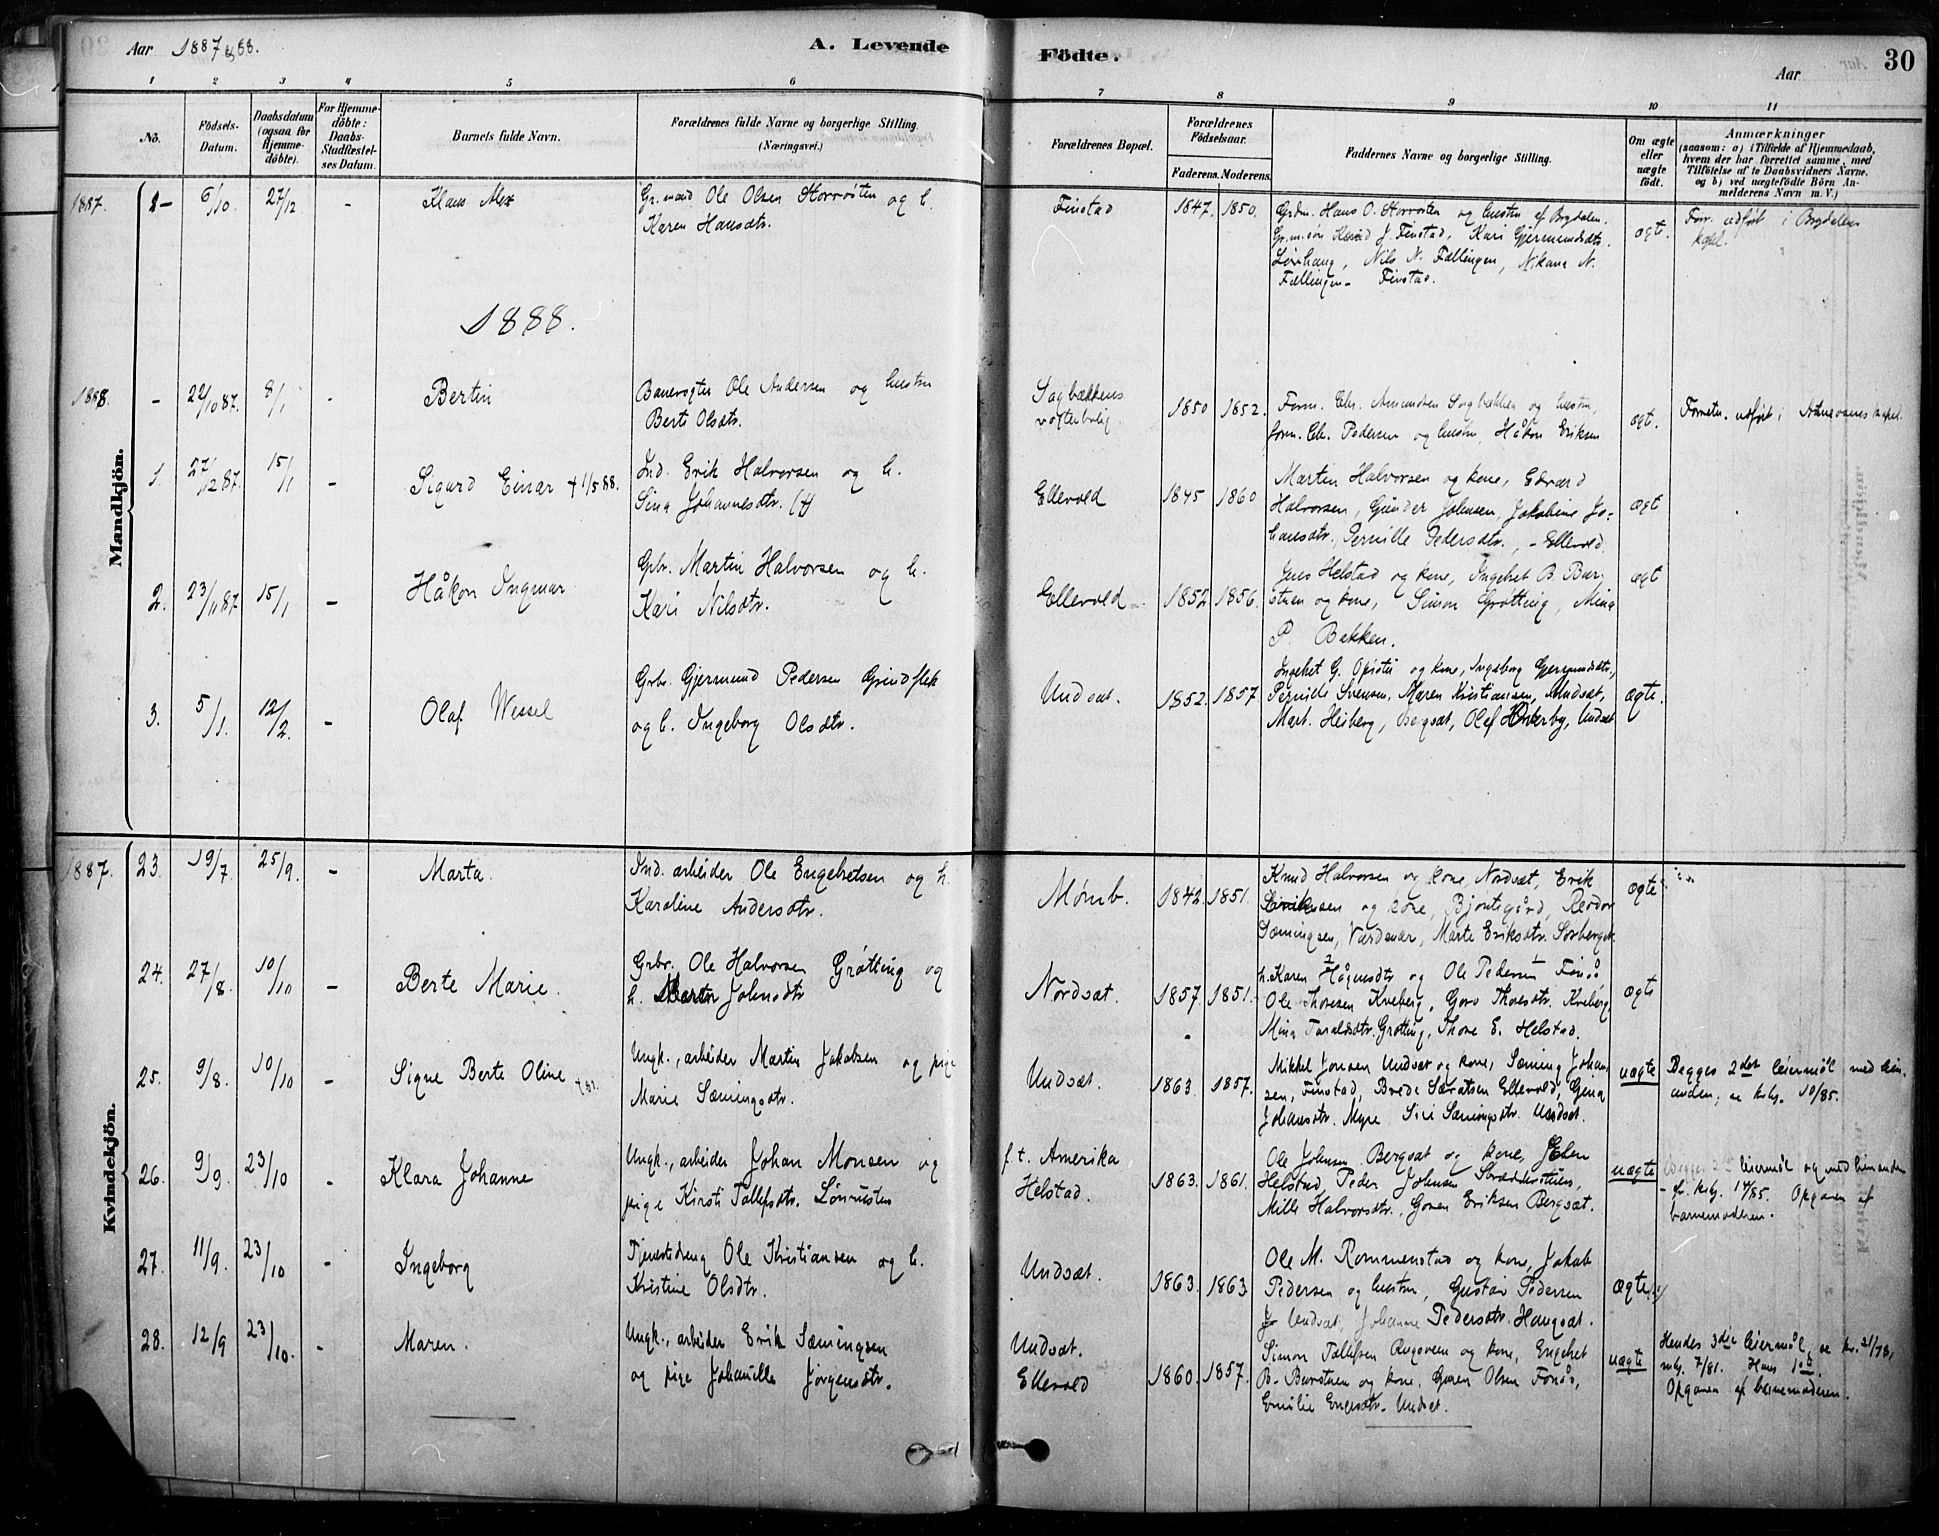 Aar 1887 & 88.
A. Levende
Födte.
Aar
30
1 2 3 4 5 6
7 8 9 10 11
No.
Födsels-
Datum.
Daabsdatum
(ogsaa for
Hjemme-
döbte).
For Hjemme-
döbte:
Daabs-
Stadfæstel-
ses Datum.
Barnets fulde Navn.
Forældrenes fulde Navne og borgerlige Stilling.
(Næringsvei.)
Forældrenes Bopæl.
Forældrenes
Födselsaar.
Faderens. Moderens.
Faddernes Navne og borgerlige Stilling.
Om ægte
eller
uægte
födt.
Anmærkninger
(saasom: a) i Tilfælde af Hjemmedaab,
hvem der har forrettet samme, med
Tilföielse af to Daabsvidners Navne.
og b) ved uægtefödte Börn An-
melderens Navn m. V.)
Mandkjön.
1887. 6/10. 27/12 - Klaus
Gr.mand Ole Olsen Horrosten og h.
Karen Hansdtr.
Finstad 1847. 1850.
Grdm. Hans O. Horrosten og hustru af Brydalen.
J. Finstad, Kari Gjermundsdtr.
Nils N. Fællingen, N.
Fællingen - Finstad.
ægt.
Forr. udført i Brydalens
kapel.
1888.
1888. - 22/10 87. 8/1 - Bertin
Banevogter Ole Andersen og hustru
Berte Olsdtr.
Sagbækkens
vogterbolig. 1850 1852.
Form. Chr. Amundsen Sagbækken og hustru,
form. Chr. Pedersen og hustru, Håkon Eriksen
ægt.
Forretn. udført i Atnaosens kapel.
1. 27/12 87. 15/1 - Sigurd Einar + 1/5 88.
Ind. Erik Halvorsen og h.
Sina Johannesdtr. (+)
Ellevold 1845 1860
Martin Halvorsen og kone, Edvard
Halvorsen, Gunder Johnsen, Jakobine Jo-
hansdtr. Pernille Pedersdtr., - Ellevold.
ægt
2. 23/11 87. 15/1 - Håkon Ingmar
Gbr. Martin Halvorsen og h.
Kari Nilsdtr.
Ellevold - 1852 1856.
Jens Helstad og kone, Ingebret B. Bur-
stuen og kone, Simon Grøtting, Mina
P. Bakken.
ægt
3. 5/1. 12/2. - Olaf Wessel
Grbr. Gjermund Pedersen Grindflek
og h. Ingeborg Olsdtr.
Undsat. 1852. 1857
Ingebret G. og kone, Ingeborg Gjermundsdtr.,
Pernille Svensen, Maren Kristiansen, Undsæt,
Mart. Heiberg, Bergsæt, Olaf Undset
ægte.
Kvindekjön.
1887. 23. 19/7 25/9. - Marta.
Ind. arbeider Ole Engebretsen og h.
Karoline Andersdtr.
Mømb. 1842. 1851.
Knud Halvorsen og kone, Nordsæt, Erik
Eriksen og kone, Bjontegård, Reidar
Sæmingsen, Vardenær, Marte Eriksdtr. Sorberget.
ægte
24. 27/8. 10/10 - Berte Marie.
Grbr. Ole Halvorsen Grøtting og
h. Johnsdtr
Nordsæt. 1857. 1851.
h. Karen Hågensdtr og Ole Pedersen Fonås
Ole Thoresen Kveberg, Goro Thoresdtr. Kveberg,
Mina Taraldsdtr. Grøtting, Thore E. Helstad.
ægte
25. 9/8. 10/10 - Signe Berte Oline
Ungk., arbeider Martin Jakobsen og pige
Marie Sæmingsdtr.
Undsæt. 1863 1857.
Mikkel Jonsen Undsæt og kone, Sæming Johan-
sen, Finstad, Brede Ellevold, Gina
Johansdtr. Myre, Siri Sæmingsdtr. Undset.
uægte
Begges 2det leiermål med hin-
anden, se kbg. 10/85.
26. 9/9. 23/10 - Klara Johanne
Ungk., arbeider Johan Monsen og
pige Kirsti Tollefsdtr. Lønrusten
f. t. Amerika
Helstad. 1863. 1861.
Ole Johnsen Bergsæt og kone, Elen
Helstad, Peder Johnsen
Mille Halvorsdtr., Goren Eriksen Bergsæt.
uægte
Begges leiermål og med hinanden
- kbg. 14/85. Opgaven af
barnemoderen.
27. 11/9. 23/10 - Ingeborg
Tjenestedreng Ole Kristiansen og h.
Kristine Olsdtr.
Undsæt. 1863. 1863
Ole M. Rommenstad og kone, Jakob
Pedersen og hustru, Gustav Pedersen
Undset, Johanne Pedersdtr. Haugsæt.
Ægte
28. 12/9 23/10. - Maren.
Ungk., arbeider Erik Sæmingsen
og pige Johanille Jørgensdtr.
Undsæt.
Ellevold 1860. 1857.
Simon Tollefsen og kone, Engebret
B. Burstuen og kone, Goren Olsen Fonås,
Emilie Engesdtr. Undset.
uægte
Hendes 3die leiermål, se kr. 21/78,
mkg. 7/81. Hans 1ste.
Opgaven af barnemoderen.